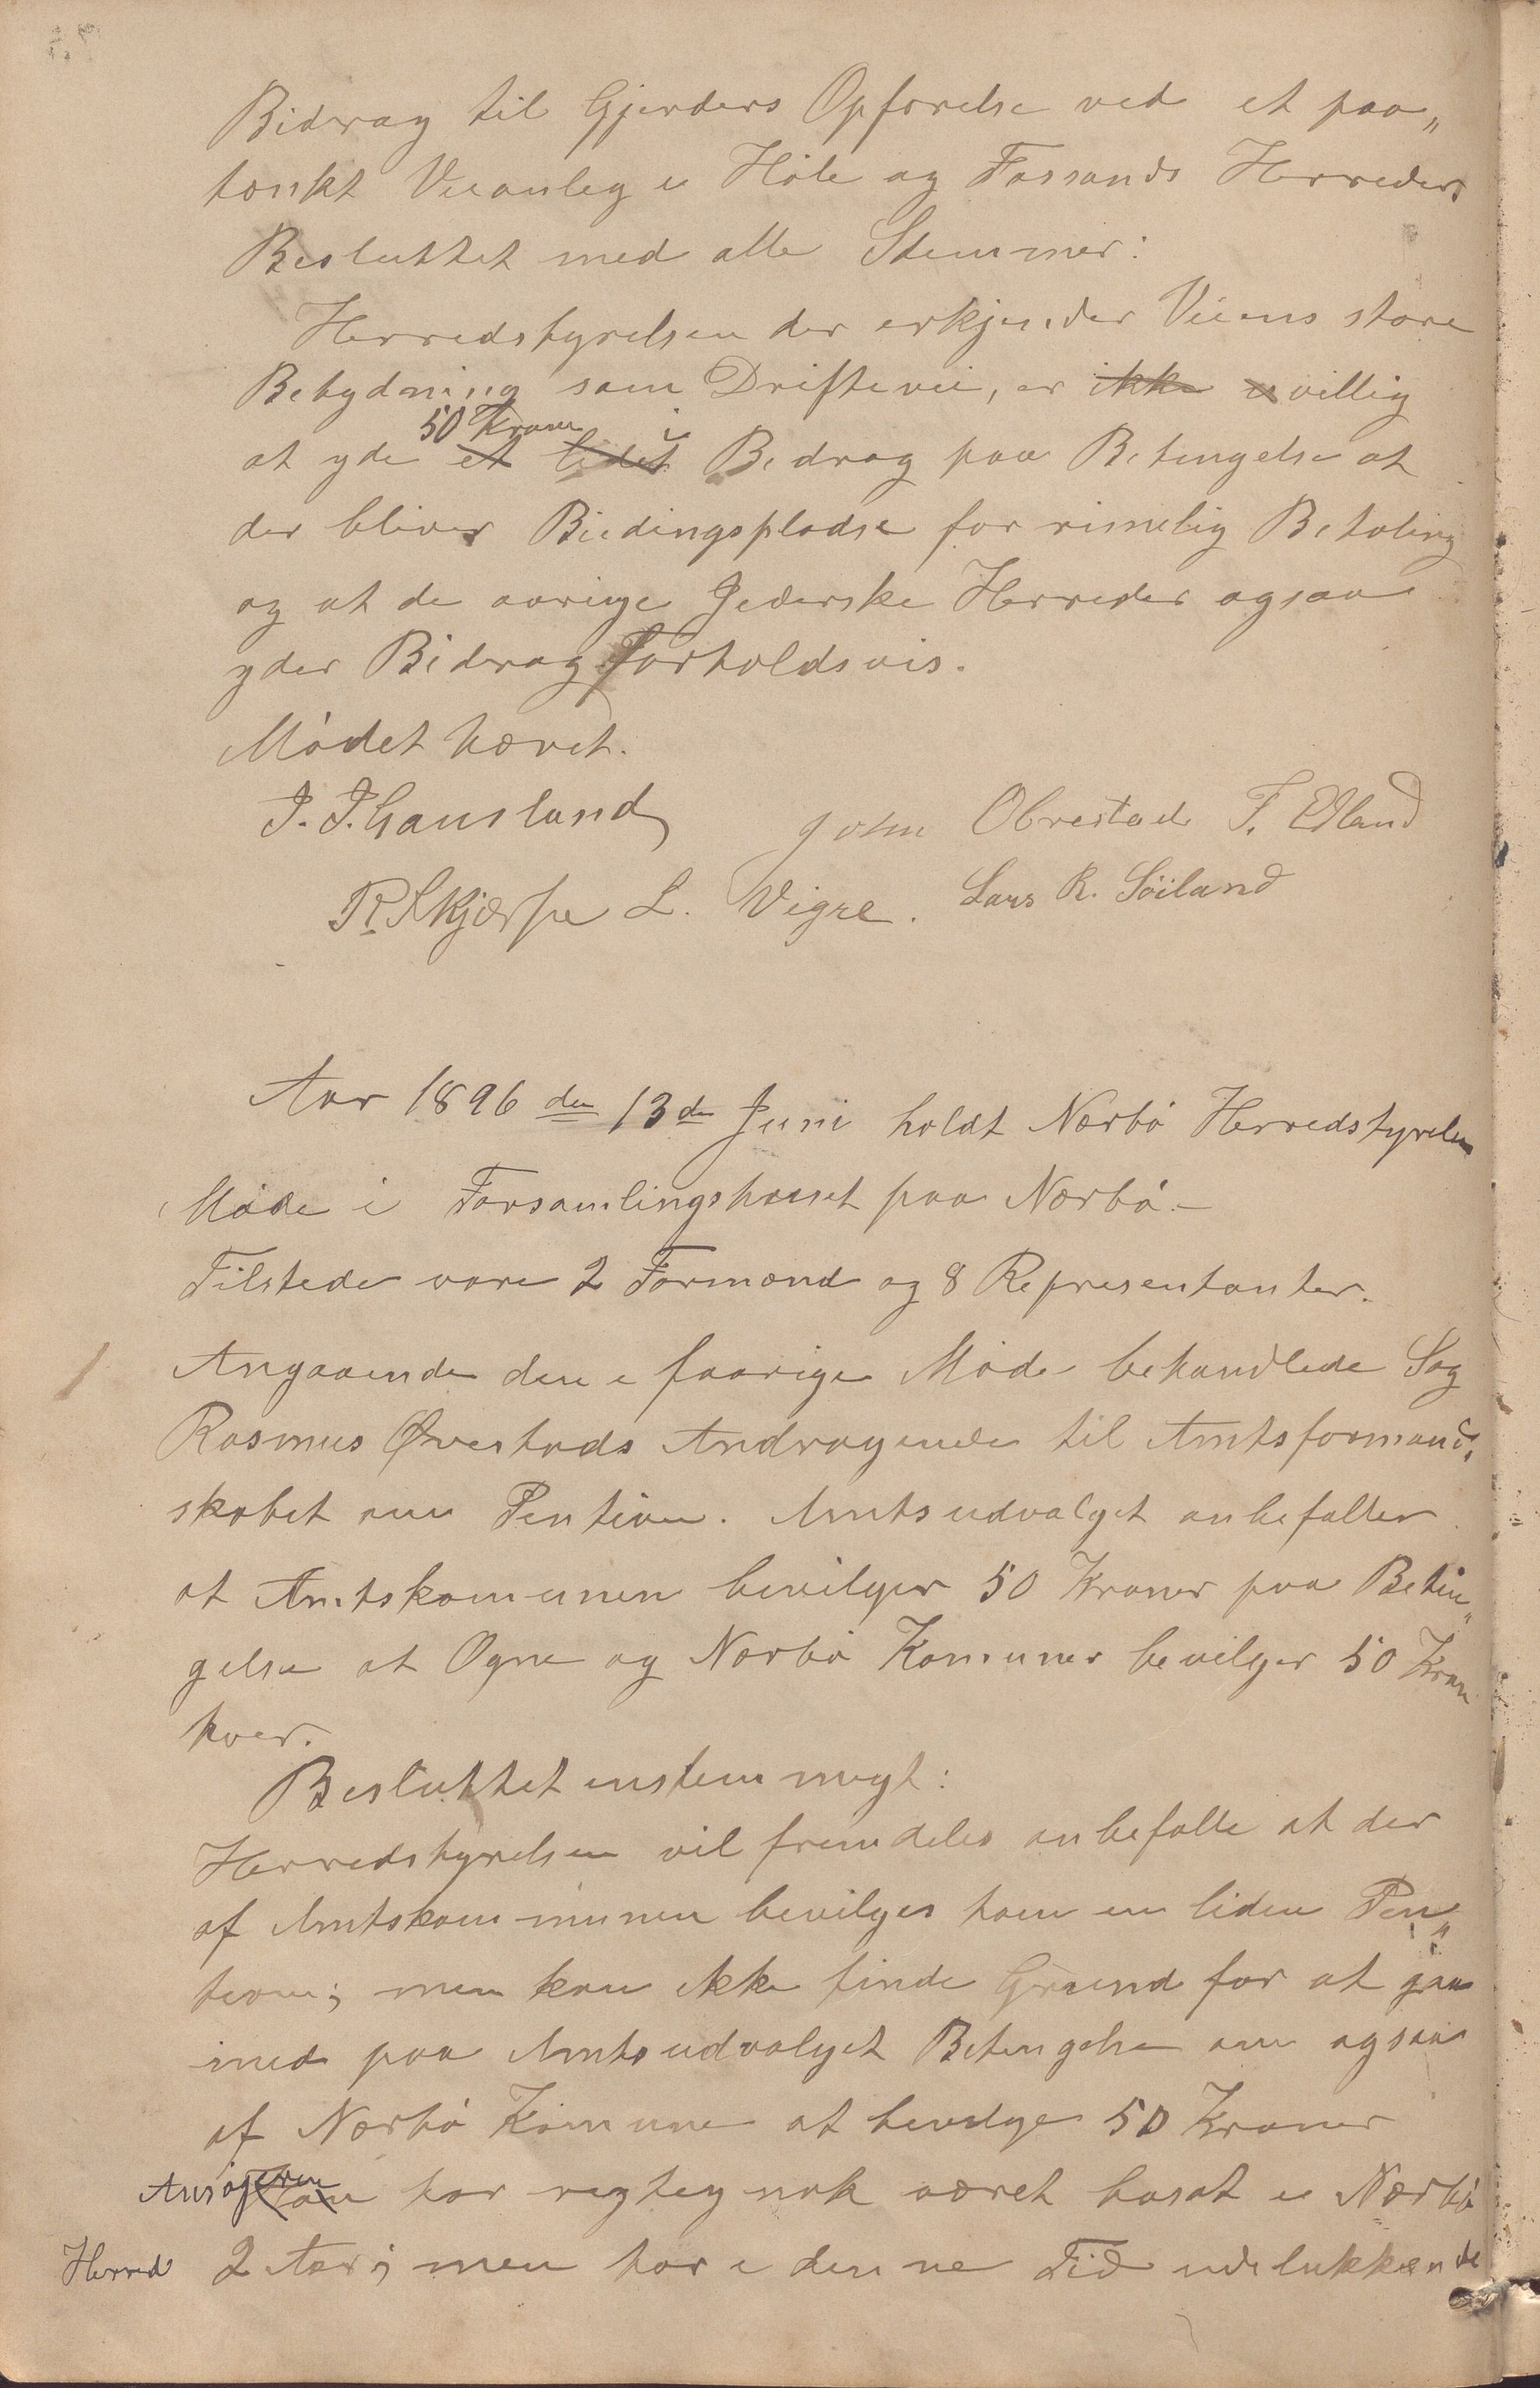 Bidrag til Gjerders Opførelse ved et paa„
tænkt Veianleg i Høle og Fossands Herreder
Besluttet med alle Stemmer:
Herredstyrelsen der erkjender Veiens store
Betydning som Driftevei, er ikke u villig
50 Kroner i
at yde et lidet Bedrag paa Betingelse at
der bliver Biedingspladse for rimelig Betaling
og at de øvrige Jederske Herreder ogsaa
yder Bidrag Forholdsvis.
Mødet hævet.
J. J. Gausland John Obrestad T. Edland
R. Skjærpe L. Vigre. Lars R. Söiland
Aar 1896 den 13de Juni holdt Nærbø Herredstyrelse
Møde i Forsamlingshuset paa Nærbø.-
Tilstede vare 2 Formænd og 8 Representanter.
Angaaende den i faarige Møde behandlede Sag
Rasmus Øvestads Andragende til Amtsformand„
skabet om Pention. Amtsudvalget anbefaller
at Amtskomunen bevilger 50 Kroner paa Betin„
gelse at Ogne og Nærbø Komuner bevilger 50 Kron
hver.
Besluttet enstemmigt:
Herredstyrelsen vil fremdeles anbefalle at der
af Amtskommunen bevilges ham en liden Pen„
tion; men kan ikke finde Grund for at gaa
med paa Amtsudvalget Betingelse om ogsaa
af Nærbø Komune at bevilge 50 Kroner
Ansøgeren han har regtig nok været bosat i Nærbø
Herred 2 Aar; men har i denne Tid udelukkende